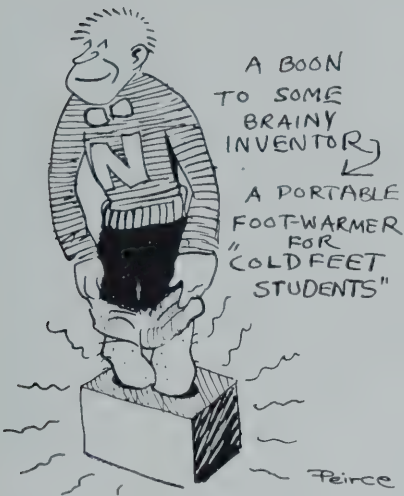 A BOON
TO SOME
BRAINY
INVENTOR
A PORTABLE
FOOT-WARMER
FOR
"COLD FEET
STUDENTS"
N
Peirce